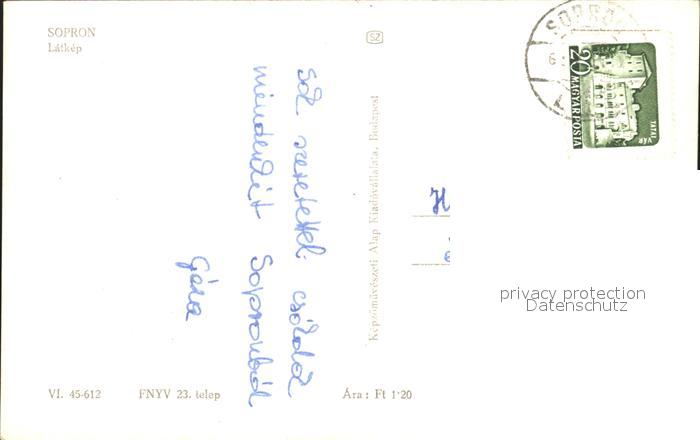 SOPRON
Látkép
SZ
SOPRON
20
MAGYAR POSTA
TATAI VÁR
Sok szeretettel csókol
mindenkit Sopronból
Géza
Képzőművészeti Alap Kiadóvállalata, Budapest
H
privacy protection
Datenschutz
VI. 45-612
FNYV 23. telep
Ára: Ft 1·20